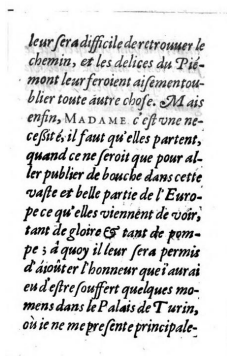 leur sera difficile de retrouuer le
chemin, et les delices du Pié-
mont leur feroient aisement ou-
blier toute autre chose. Mais
enfin, MADAME c'est vne ne-
cessité, il faut qu'elles partent,
quand ce ne seroit que pour al-
ler publier de bouche dans cette
vaste et belle partie de l'Euro-
pe ce qu'elles viennent de voir,
tant de gloire & tant de pom-
pe ; à quoy il leur sera permis
d'aiouter l'honneur que i'aurai
eu d'estre souffert quelques mo-
mens dans le Palais de Turin,
où ie ne me presente principale-